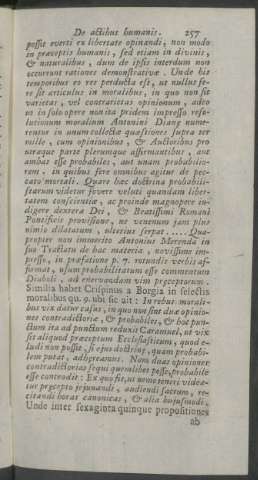 De actibus humanis. 257
possit everti ex libertate opinandi, non modo
in præceptis humanis, sed etiam in divinis,
& naturalibus, dum de ipsis interdum non
occurrunt rationes demonstrativæ. Unde his
temporibus eo res perducta est, ut nullus fe-
re sit articulus in moralibus, in quo non sit
varietas, vel contrarietas opinionum, adeo
ut in solo opere non ita pridem impresso reso-
lutionum moralium Antonini Diang nume-
rentur in unum collectæ quæstiones supra ter
mille, cum opinionibus, & Auctoribus pro
utraque parte plerumque affirmantibus, aut
ambas esse probabiles, aut unam probabilio-
rem, in quibus fere omnibus agitur de pec-
cato mortali. Quare hæc doctrina probabili-
starum videtur fovere veluti quandam liber-
tatem conscientiæ, ac proinde magnopere in-
digere dextera Dei, & Beatissimi Romani
Pontificis provisione, ne venenum jam plus
nimio dilatatum, ulterius serpat ..... Qua-
propter non immerito Antonius Merenda in
suo Tractatu de hac materia, novissime im-
presso, in præfatione p. 7. rotundis verbis af-
firmat, usum probabilitatum esse commentum
Diaboli, ad enervandam vim præceptorum.
Similia habet Crispinus a Borgia in selectis
moralibus qu. 9. ubi sic ait: In rebus morali-
bus vix datur casus, in quo non sint duæ opinio-
nes contradictoriæ, & probabiles, & hoc pun-
ctum ita ad punctum reduxit Caramuel, ut vix
sit aliquod præceptum Ecclesiasticum, quod e-
ludi non possit, si ejus doctrinæ, quam probabi-
lem putat, adhæreamus. Nam duas opiniones
contradictorias sequi quemlibet posse, probabile
esse contendit: Ex quo fit, ut nemo teneri videa-
tur præcepto jejunandi, audiendi sacrum, re-
citandi horas canonicas, & alia hujusmodi.
Unde inter sexaginta quinque propositiones
ab